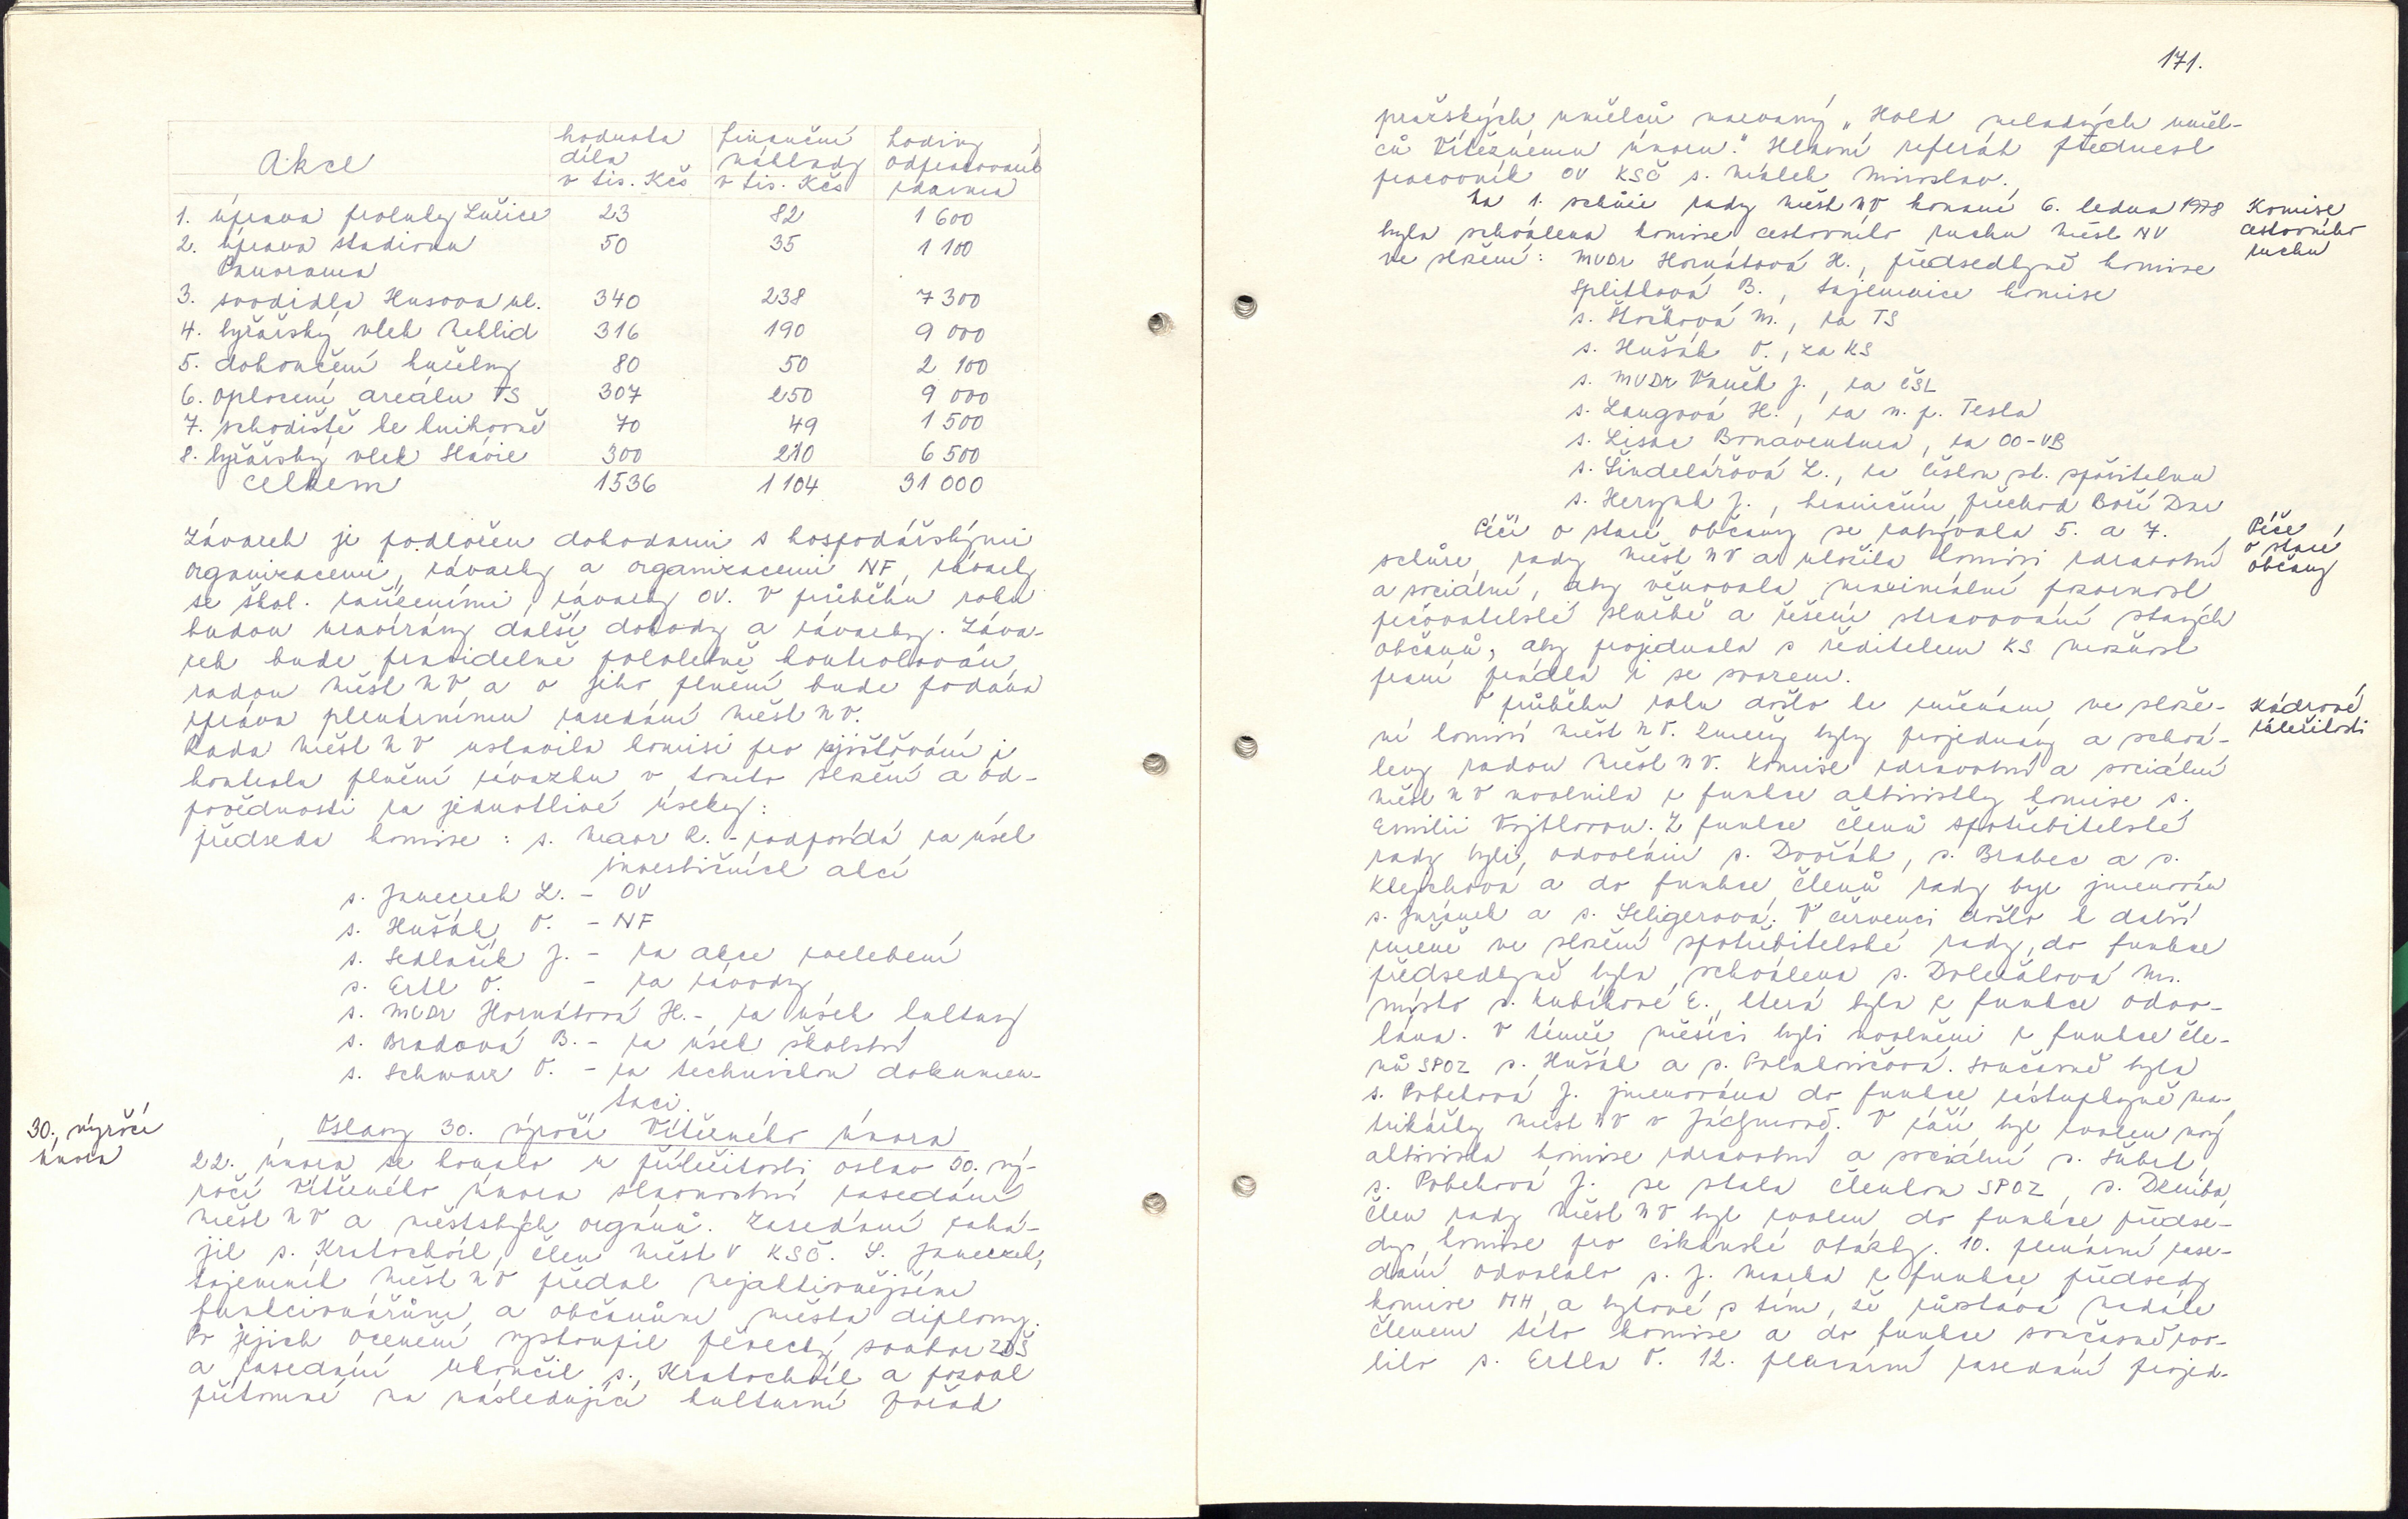 Akce | hodnota díla v tis. Kčs | finanční náklady v tis. Kčs | hodiny odpracované zdarma
1. úprava proluky Lučice 23 82 1 600
2. úprava stadionu Panorama 50 35 1 100
3. svodidla Husova ul. 340 238 7 300
4. lyžařský vlek Neklid 316 190 9 000
5. dokončení kužeLny 80 50 2 100
6. oplocení areálu TS 307 250 9 000
7. schodiště ke knihovně 70 49 1 500
8. lyžařský vlek Slávie 300 210 6 500
Celkem 1536 1 104 31 000
Závazek je podložen dohodami s hospodářskými
organizacemi, závazky a organizacemi NF, závazky
se škol. zařízeními, závazky OV. V průběhu roku
budou uzavírány další dohody a závazky. Záva-
zek bude pravidelně pololetně kontrolován
radou Měst NV a o jeho plnění bude podána
zpráva plenárnímu zasedání Měst NV.
Rada Měst NV ustavila komisi pro zjišťování a
kontrolu plnění závazku v tomto složení a od-
povědnosti za jednotlivé úseky:
předseda komise : s. R. - zodpovídá za úsek
investičních akcí
s. Janeczek L. - OV
s. Hušák V. - NF
s. Sedlačík J. - za akce zvelebení
s. Ertl V. - za závody
s. MUDr Hornátová H. - za úsek kultury
s. Bradová B. - za úsek školství
s. Schwarz V. - za technickou dokumen-
taci.
30. výročí
února
Oslavy 30. výročí Vítězného února
22. února se konalo u příležitosti oslav 30. vý-
ročí Vítězného února slavnostní zasedání
Měst NV a městských orgánů. Zasedání zahá-
jil s. Kratochvíl, člen Měst V KSČ. S. Janeczek,
tajemník Měst NV předal nejaktivnějším
funkcionářům a občanům města diplomy.
Po jejich ocenění vystoupil pěvecký soubor ZDŠ
a zasedání ukončil s. Kratochvíl a pozval
přítomné na následující kulturní pořad
171.
pražských umělců nazvaný „Hold mladých uměl-
ců Vítěznému únoru." Hlavní referát přednesl
pracovník OV KSČ s. Málek Miroslav.
Na 1. schůzi rady Měst NV konané 6. ledna 1978
byla schválena komise cestovního ruchu Měst NV
ve složení : MUDr Hornátová H., předsedkyně komise
Komise
cestovního
ruchu
Splítková B., tajemnice komise
s. M., za TS
s. Hušák V., za KS
s. MUDr Vaněk J., za ČSL
s. Langová H., za n. p. Tesla
s. Lisac Bonaventura, za OO-VB
s. Šindelářová L., za Českou st. spořitelnu
s. J., hraniční přechod Boží Dar
Péčí o staré občany se zabývala 5. a 7.
schůze rady Měst NV a uložila komisi zdravotní
a sociální, aby věnovala maximální pozornost
pečovatelské službě a řešení stravování starých
občanů, aby projednala s ředitelem KS možnost
praní prádla i se svozem.
Péče
o staré
občany
V průběhu roku došlo ke změnám ve slože-
ní komisí Měst NV. Změny byly projednány a schvá-
leny radou Měst NV. Komise zdravotní a sociální
Měst NV uvolnila z funkce aktivistky komise s.
Emilii Vojtkovou. Z funkce členů spotřebitelské
rady byli odvoláni s. Dvořák, s. Brabec a s.
Klejchová a do funkce členů rady byl jmenován
s. Juránek a s. Seligerová. V červenci došlo k další
změně ve složení spotřebitelské rady, do funkce
předsedkyně byla schválena s. Doležalová M.
místo s. Kubíkové E., která byla z funkce odvo-
lána. V témže měsíci byli uvolněni z funkce čle-
nů SPOZ s. Hušák a s. Současně byla
s. Pobehová J. jmenována do funkce zástupkyně ma-
trikářky Měst NV v Jáchymově. V září byl zvolen nový
aktivista komise zdravotní a sociální s. Šubrt,
s. Pobehová J. se stala členkou SPOZ, s. Dzuba,
člen rady Měst NV byl zvolen do funkce předse-
dy komise pro cikánské otázky. 10. plenární zase-
dání odvolalo s. J. z funkce předsedy
komise MH a bytové s tím, že zůstává nadále
členem této komise a do funkce současně zvo-
lilo s. Ertla V. 12. plenární zasedání projed-
Kádrové
záležitosti